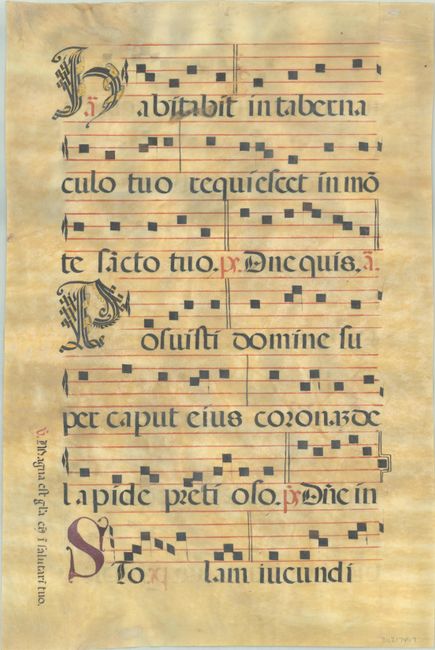 Habitabit in taberna
ã.
culo tuo requiescet in mõ
te sãcto tuo. ps. Dñe quis. ã.
Posuisti domine su
per caput eius coronaz de
lapide preti oso. ps. Dñe in
Stolam iucundi
℣. Magna est gl̃a eiꝰ ĩ salutari tuo.